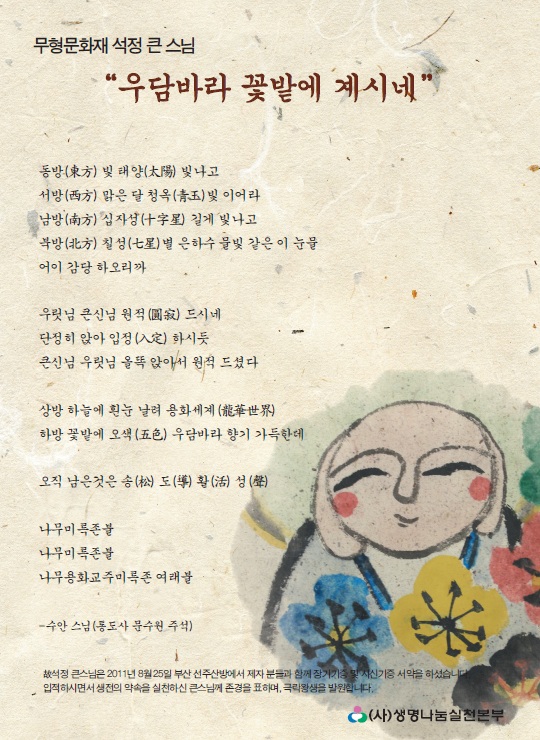 무형문화재 석정 큰 스님
“우담바라 꽃밭에 계시네”
동방(東方) 빛 태양(太陽) 빛나고
서방(西方) 맑은 달 청옥(靑玉)빛 이어라
남방(南方) 십자성(十字星) 길게 빛나고
북방(北方) 칠성(七星)별 은하수 물빛 같은 이 눈물
어이 감당 하오리까
우릿님 큰신님 원적(圓寂) 드시네
단정히 앉아 입정(入定) 하시듯
큰신님 우릿님 올뚝 앉아서 원적 드셨다
상방 하늘에 흰눈 날려 용화세계(龍華世界)
하방 꽃밭에 오색(五色) 우담바라 향기 가득한데
오직 남은것은 송(松) 도(導) 활(活) 성(聲)
나무미륵존불
나무미륵존불
나무용화교주미륵존 여래불
-수안 스님(통도사 문수원 주석)
故석정 큰스님은 2011년 8월25일 부산 선주산방에서 제자 분들과 함께 장기기증 및 시신기증 서약을 하셨습니다.
입적하시면서 생전의 약속을 실천하신 큰스님께 존경을 표하며, 극락왕생을 발원합니다.
(사)생명나눔실천본부